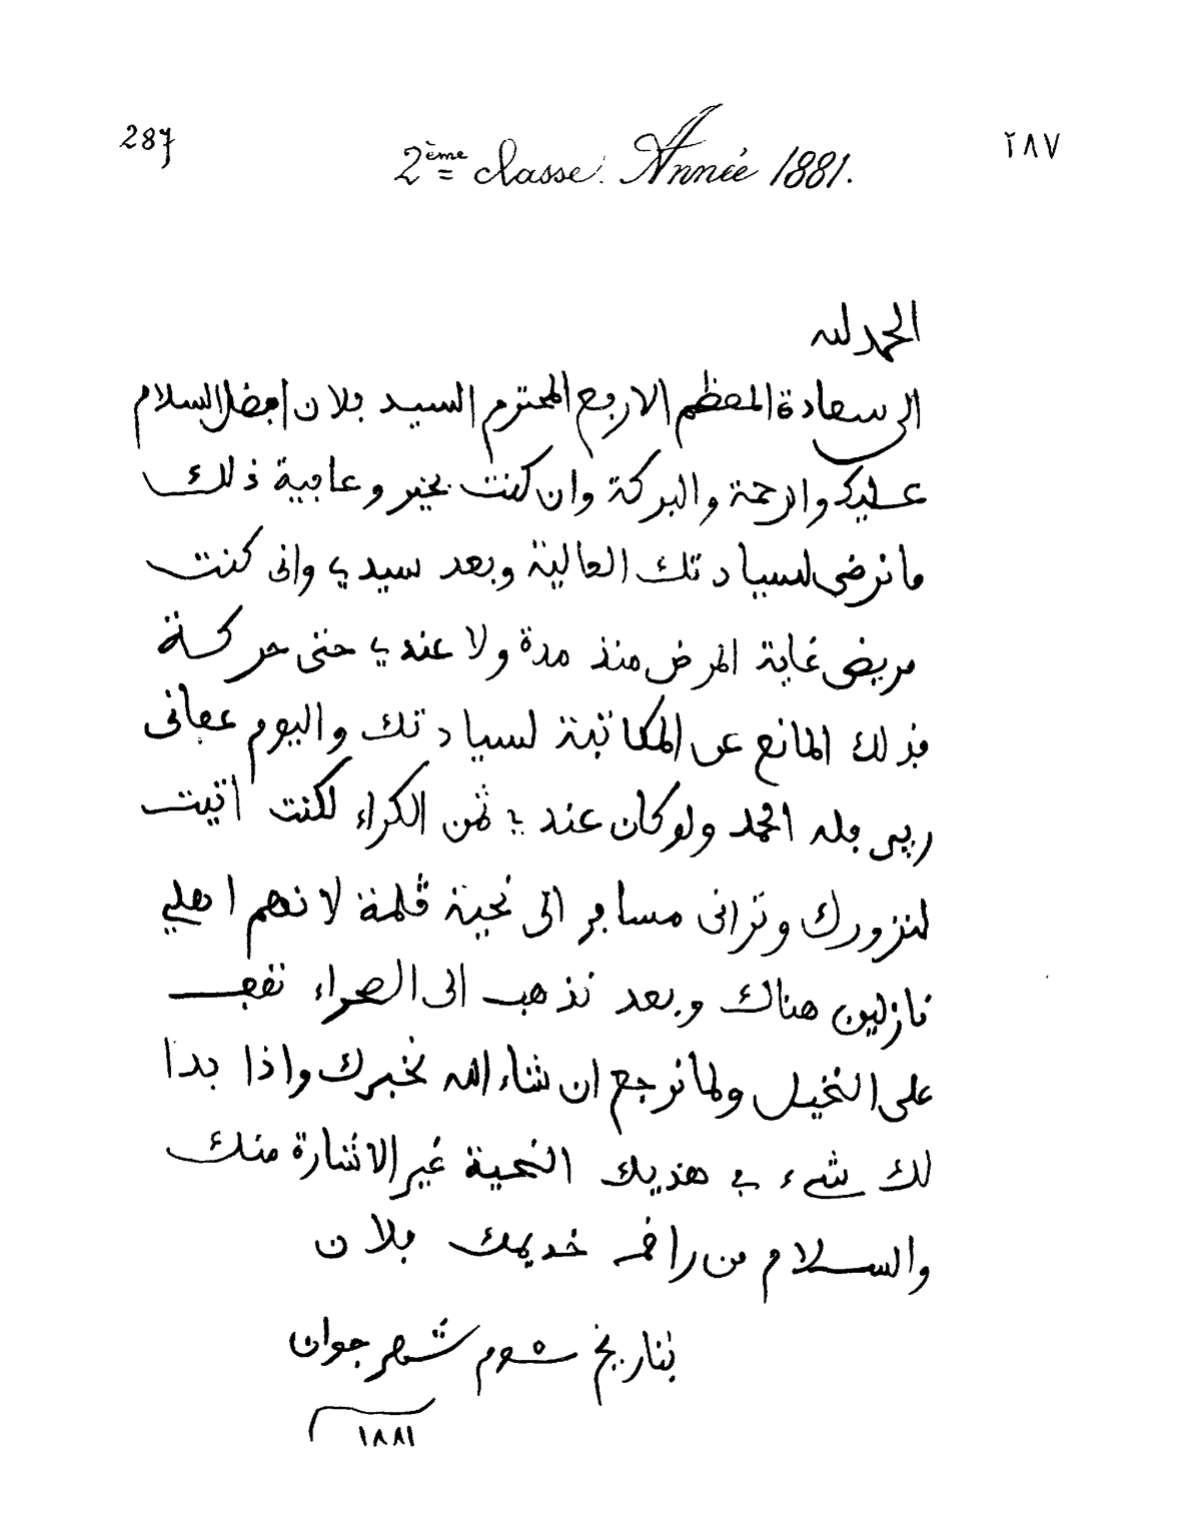 287
2ème classe. Année 1881.
٢٨٧
الحمد لله
الى سعادة المعظم الارفع المحترم السيد فلان افضل السلام
عليك والرحمة والبركة وان كنت بخير وعافية ذلك
ما نرضى لسيادتك العالية وبعد سيدي وانى كنت
مريض غاية المرض منذ مدة ولا عندي حتى حركة
فذلك المانع عن المكاتبة لسيادتك واليوم عفانى
ربى فله الحمد ولو كان عندي ثمن الكراء لكنت اتيت
لنزورك وترانى مسافر الى نحية قلمة لانهم اهلي
نازلين هناك وبعد نذهب الى الصحراء نفف
على النخيل ولما نرجع ان شاء الله نخبرك واذا بدا
لك شيء في هذيك النحية غير الاشارة منك
والسلام من راقمه خديمك فلان
بتاريخ شهر جوان
١٨٨١